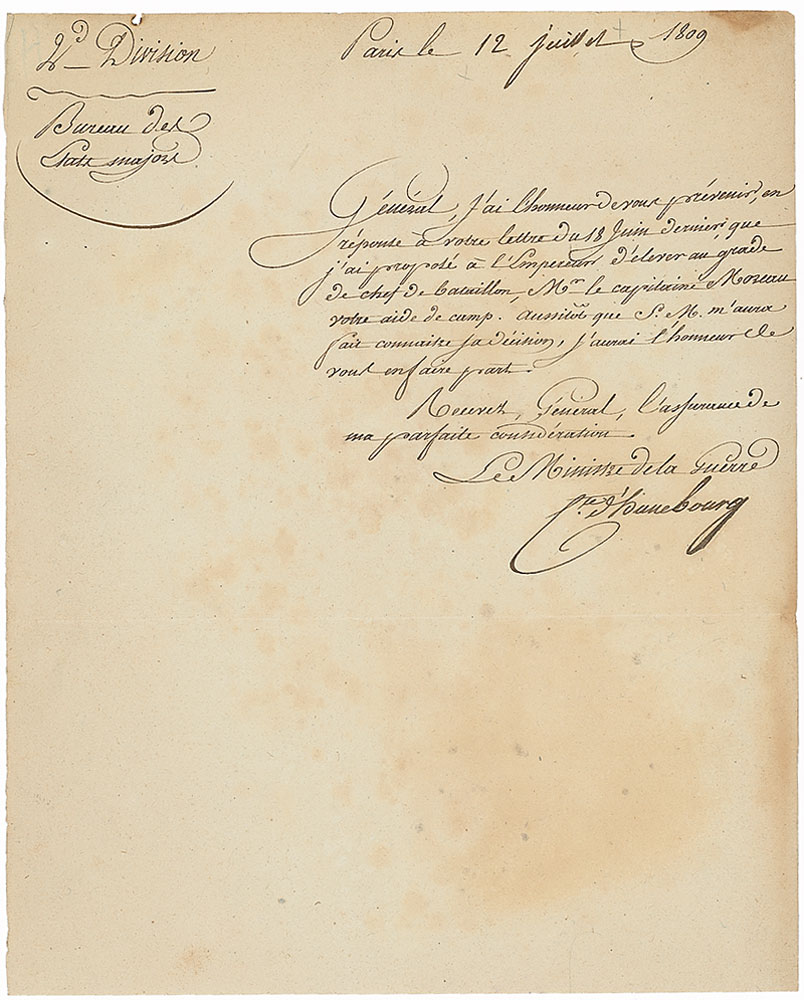 2.d Division
Paris le 12 juillet 1809
Bureau des
Etats majors
Général, J'ai l'honneur de vous prévenir, en
réponse à votre lettre du 18 Juin dernier que
j'ai proposé à l'Empereur d'élever au grade
de chef de bataillon, Mr. le capitaine Moreau
votre aide de camp. Aussitôt que S. M. m'aura
fait connaitre sa décision, j'aurai l'honneur de
vous en faire part.
Recevez, Général, l'assurance de
ma parfaite considération.
Le Ministre de la Guerre
Cte. d'hunebourg